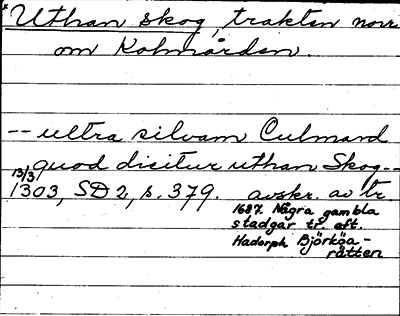 *Uthan skog, trakten norr
om Kolmården.
-- ultra silvam Culmard
quod dicitur uthan Skog--
13/3
1303, SD 2, s. 379. avskr. av tr.
1687. Några gambla
stadgar tr. eft.
Hadorph Björköa-
rätten